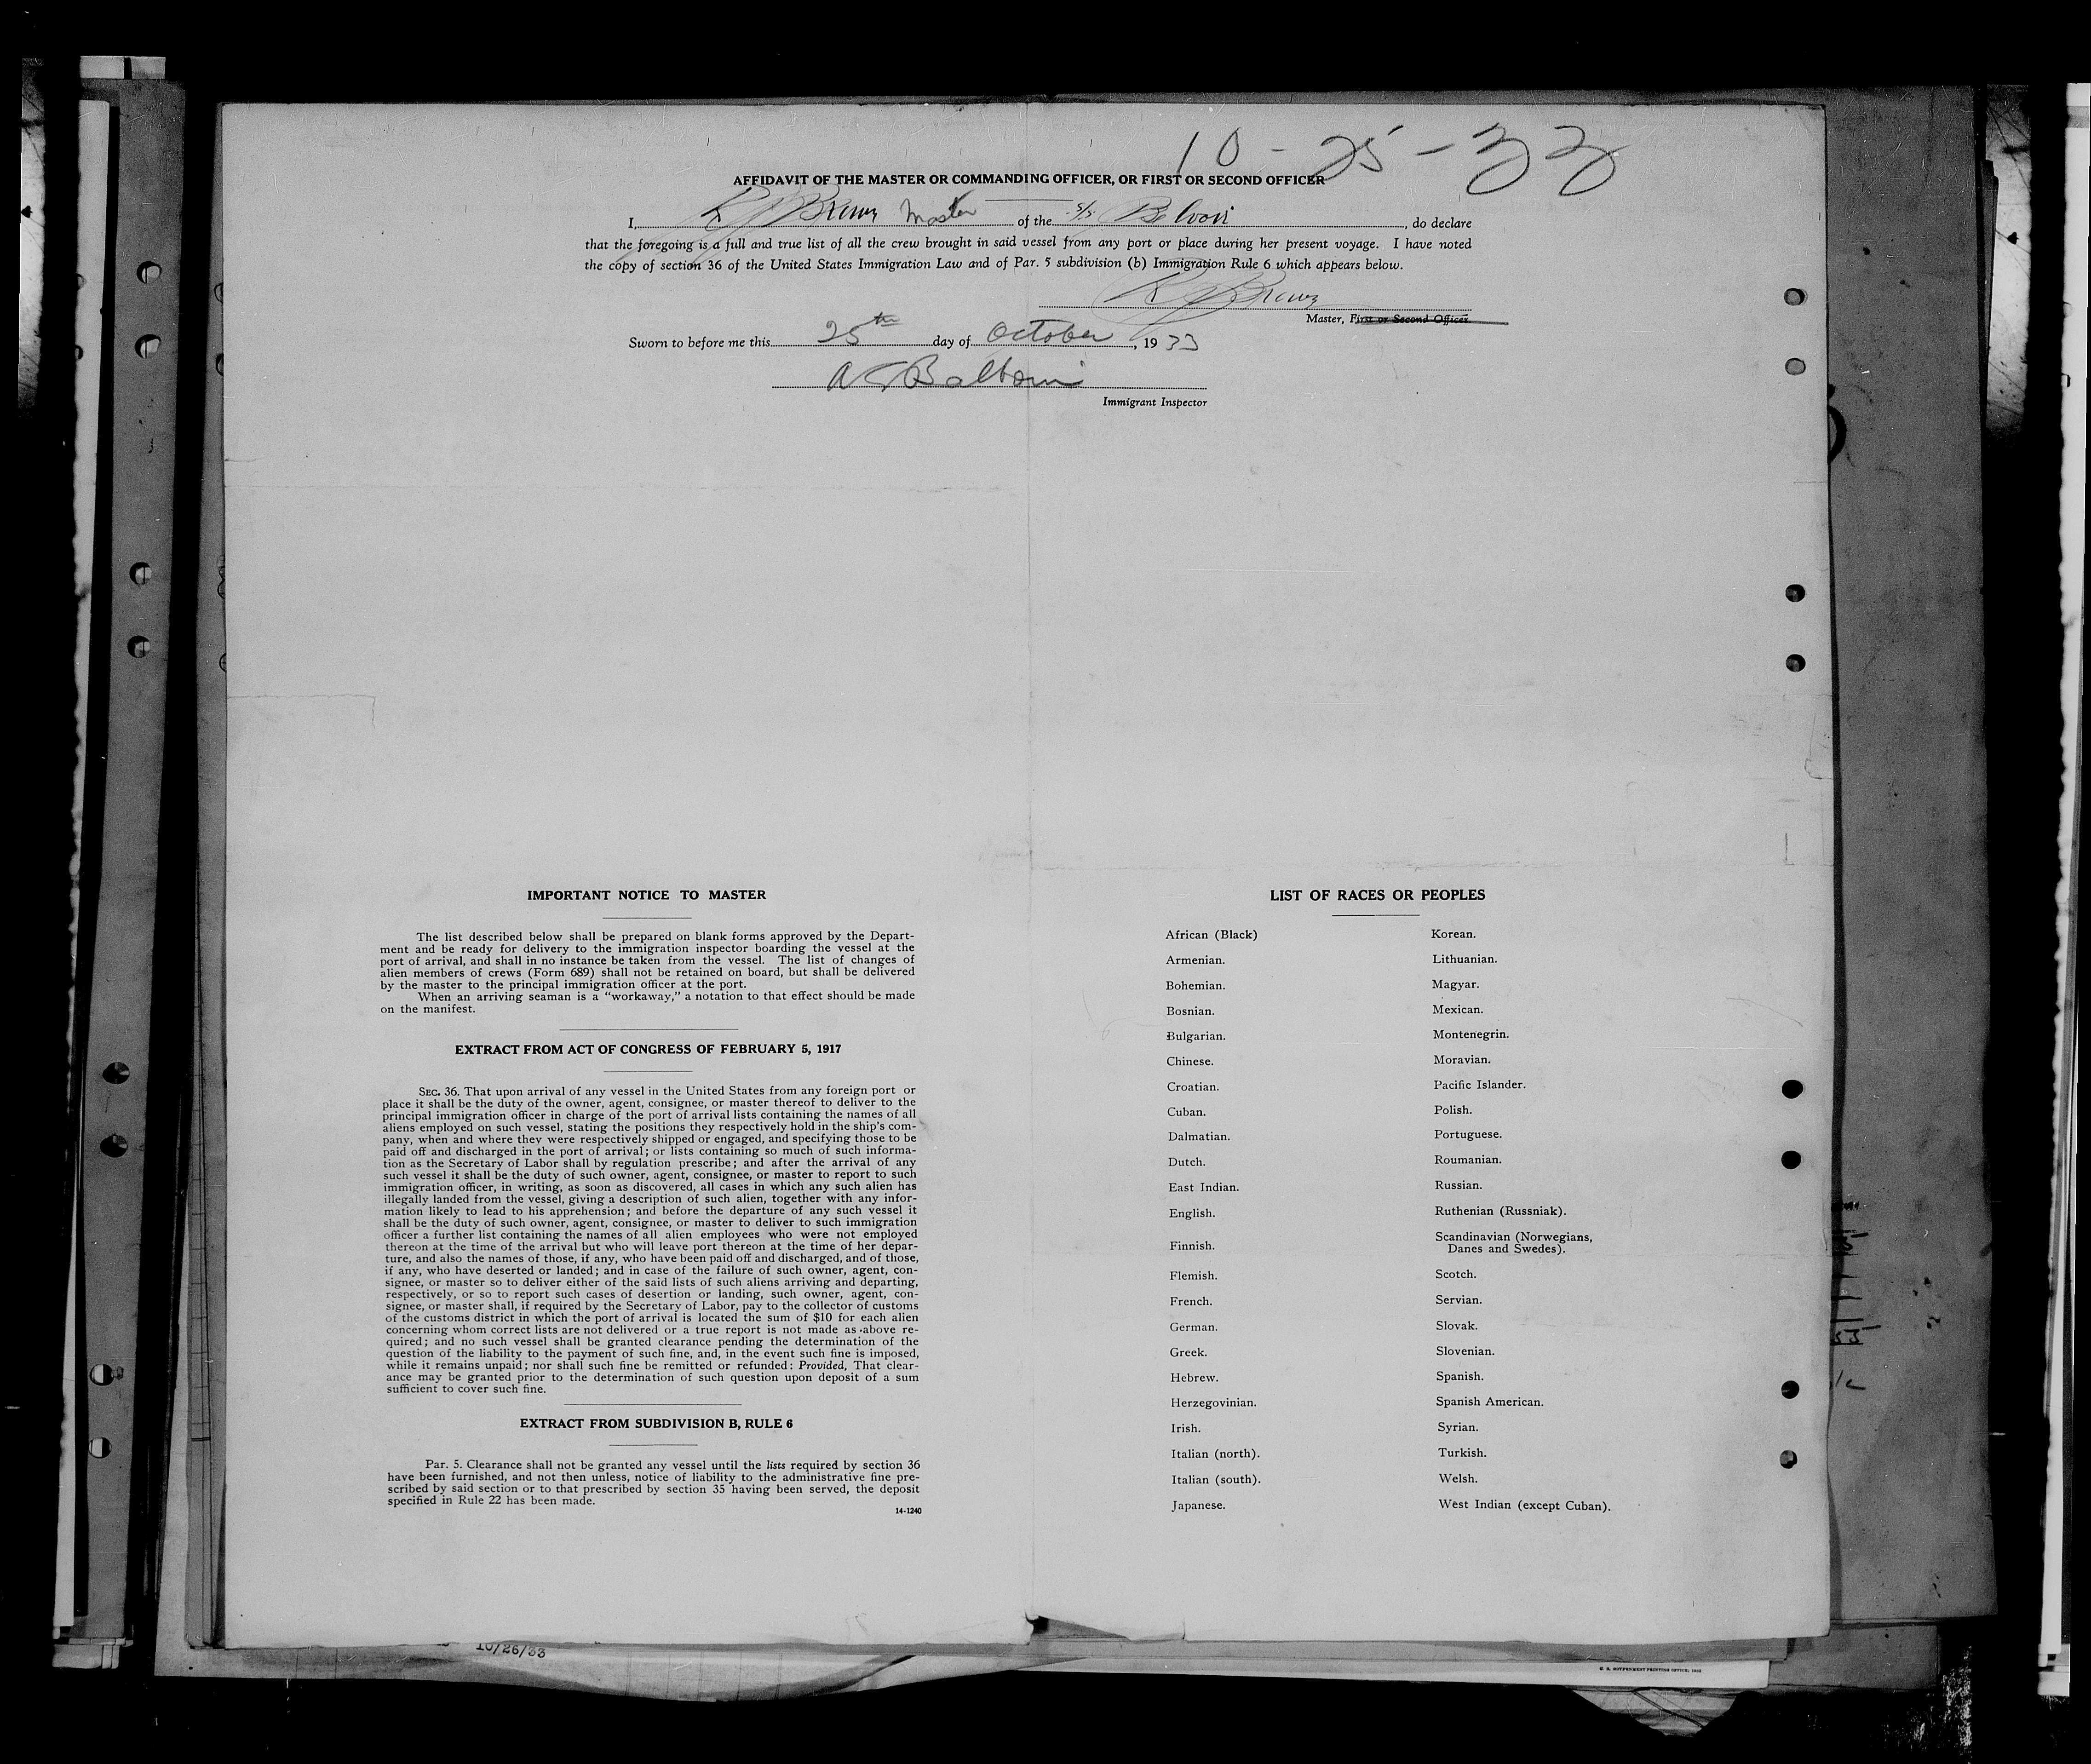 10-25-33
AFFIDAVIT OF THE MASTER OR COMMANDING OFFICER, OR FIRST OR SECOND OFFICER
I, Master of the S/S , do declare
that the foregoing is a full and true list of all the crew brought in said vessel from any port or place during her present voyage. I have noted
the copy of section 36 of the United States Immigration Law and of Par. 5 subdivision (b) Immigration Rule 6 which appears below.
Master, First or Second Officer.
Sworn to before me this 25th day of October, 1933
Immigrant Inspector
IMPORTANT NOTICE TO MASTER
The list described below shall be prepared on blank forms approved by the Depart-
ment and be ready for delivery to the immigration inspector boarding the vessel at the
port of arrival, and shall in no instance be taken from the vessel. The list of changes of
alien members of crews (Form 689) shall not be retained on board, but shall be delivered
by the master to the principal immigration officer at the port.
When an arriving seaman is a “workaway,” a notation to that effect should be made
on the manifest.
EXTRACT FROM ACT OF CONGRESS OF FEBRUARY 5, 1917
SEC. 36. That upon arrival of any vessel in the United States from any foreign port or
place it shall be the duty of the owner, agent, consignee, or master thereof to deliver to the
principal immigration officer in charge of the port of arrival lists containing the names of all
aliens employed on such vessel, stating the positions they respectively hold in the ship's com-
pany, when and where they were respectively shipped or engaged, and specifying those to be
paid off and discharged in the port of arrival; or lists containing so much of such informa-
tion as the Secretary of Labor shall by regulation prescribe; and after the arrival of any
such vessel it shall be the duty of such owner, agent, consignee, or master to report to such
immigration officer, in writing, as soon as discovered, all cases in which any such alien has
illegally landed from the vessel, giving a description of such alien, together with any infor-
mation likely to lead to his apprehension; and before the departure of any such vessel it
shall be the duty of such owner, agent, consignee, or master to deliver to such immigration
officer a further list containing the names of all alien employees who were not employed
thereon at the time of the arrival but who will leave port thereon at the time of her depar-
ture, and also the names of those, if any, who have been paid off and discharged, and of those,
if any, who have deserted or landed; and in case of the failure of such owner, agent, con-
signee, or master so to deliver either of the said lists of such aliens arriving and departing,
respectively, or so to report such cases of desertion or landing, such owner, agent, con-
signee, or master shall, if required by the Secretary of Labor, pay to the collector of customs
of the customs district in which the port of arrival is located the sum of $10 for each alien
concerning whom correct lists are not delivered or a true report is not made as above re-
quired; and no such vessel shall be granted clearance pending the determination of the
question of the liability to the payment of such fine, and, in the event such fine is imposed,
while it remains unpaid; nor shall such fine be remitted or refunded: Provided, That clear-
ance may be granted prior to the determination of such question upon deposit of a sum
sufficient to cover such fine.
EXTRACT FROM SUBDIVISION B, RULE 6
Par. 5. Clearance shall not be granted any vessel until the lists required by section 36
have been furnished, and not then unless, notice of liability to the administrative fine pre-
scribed by said section or to that prescribed by section 35 having been served, the deposit
specified in Rule 22 has been made.
14-1240
LIST OF RACES OR PEOPLES
African (Black)
Armenian.
Bohemian.
Bosnian.
Bulgarian.
Chinese.
Croatian.
Cuban.
Dalmatian.
Dutch.
East Indian.
English.
Finnish.
Flemish.
French.
German.
Greek.
Hebrew.
Herzegovinian.
Irish.
Italian (north).
Italian (south).
Japanese.
Korean.
Lithuanian.
Magyar.
Mexican.
Montenegrin.
Moravian.
Pacific Islander.
Polish.
Portuguese.
Roumanian.
Russian.
Ruthenian (Russniak).
Scandinavian (Norwegians,
Danes and Swedes).
Scotch.
Servian.
Slovak.
Slovenian.
Spanish.
Spanish American.
Syrian.
Turkish.
Welsh.
West Indian (except Cuban).
10/26/33